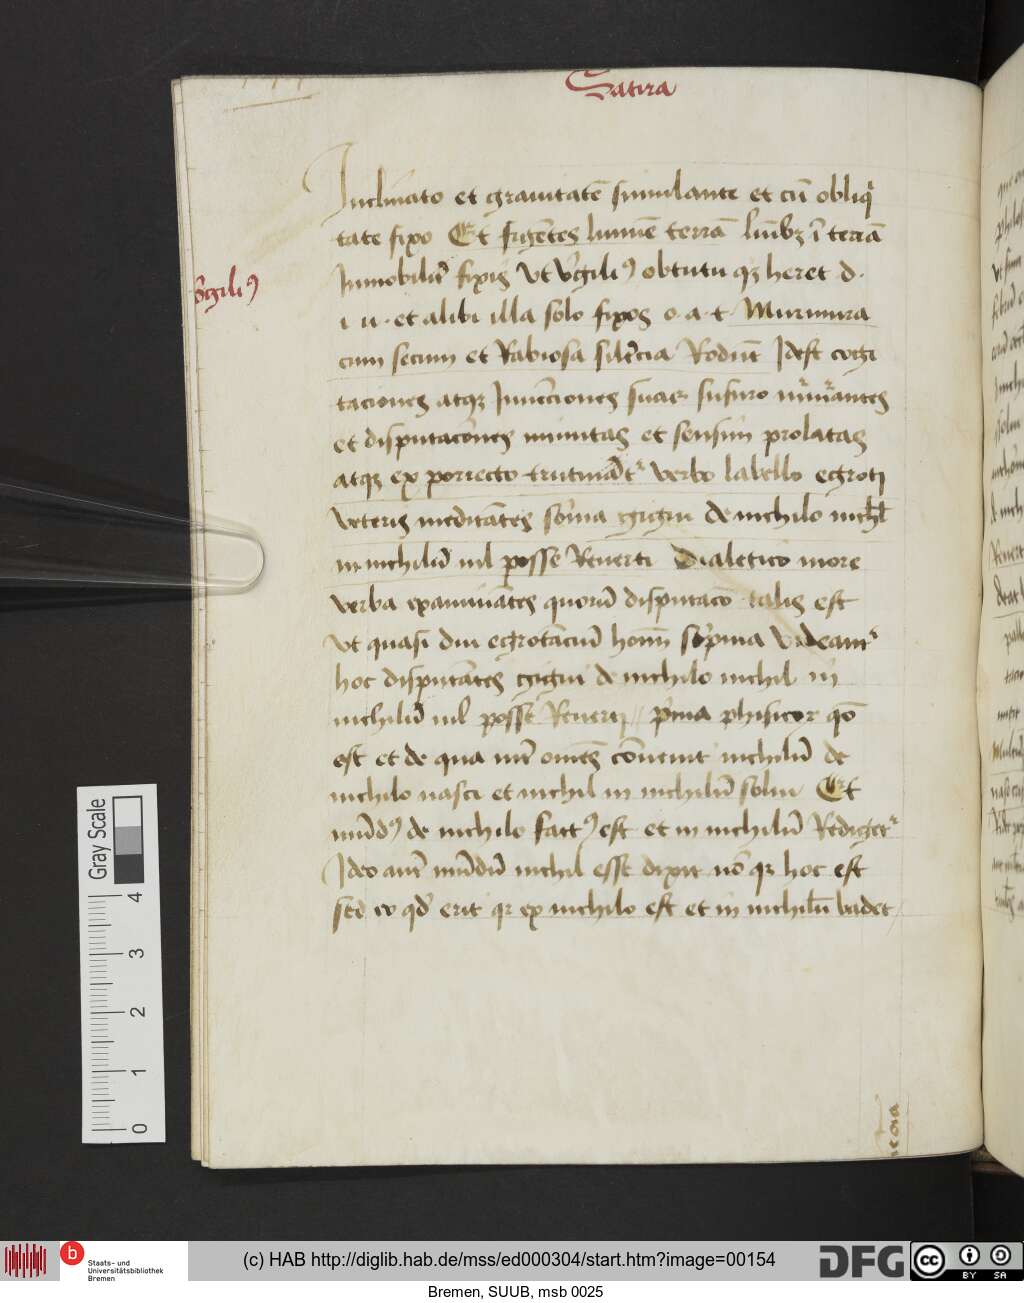 Satira
Inclinato et grauitatē simulante et cū obliq
tate fixo Et figētes lumīe terrā lūībꝫ ī terrā
Inmobiliꝰ fixis Ut Virgiliꝰ obtutu qꝫ heret d.
Virgiliꝰ
i u. et alibi illa solo fixos o. a. t. Murmura
cum secum et Rabiosa silēcia Rodūt Idest cogi
taciones atqꝫ Inuēciones suas susurro murmurantes
et disputacōnes inuitas et sensim prolatas
atqꝫ ex porrecto trutināt verbo labello egroti
veteris meditātes sōnia gigni de nichilo nichil
in nichilū nil posse Reuerti Dialetico more
verba examinātes quorū disputaco talis est
Ut quasi diu egrotanciū homī sōpnia Videant
hoc disputātes gigni de nichilo nichil in
nichilū nil posse Reuerti prima phisicor qō
est et de qua inter omēs cōuenit nichilū de
nichilo nasci et nichil in nichilū solui Et
mūdꝰ de nichilo factꝰ est et in nichilū Rediget
Ideo aut mūdū nichil esse dixit nō qꝫ hoc est
sed eo qd erit qr ex nichilo est et in nichilū vadet
Gray Scale
4
3
2
1
0
b
Staats- und
Universitätsbibliothek
Bremen
(c) HAB http://diglib.hab.de/mss/ed000304/start.htm?image=00154
DFG
cc
BY SA
Bremen, SUUB, msb 0025